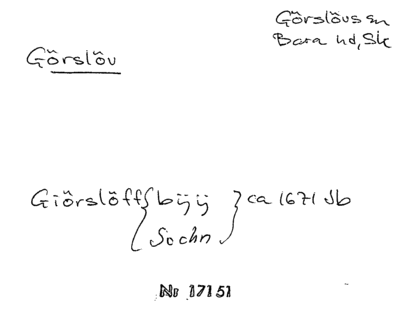 Görslövs sn
Bara hd, Sk
Görslöv
Giörslöff { bÿÿ } ca 1671 Jb
{ Sochn
Nr 17151